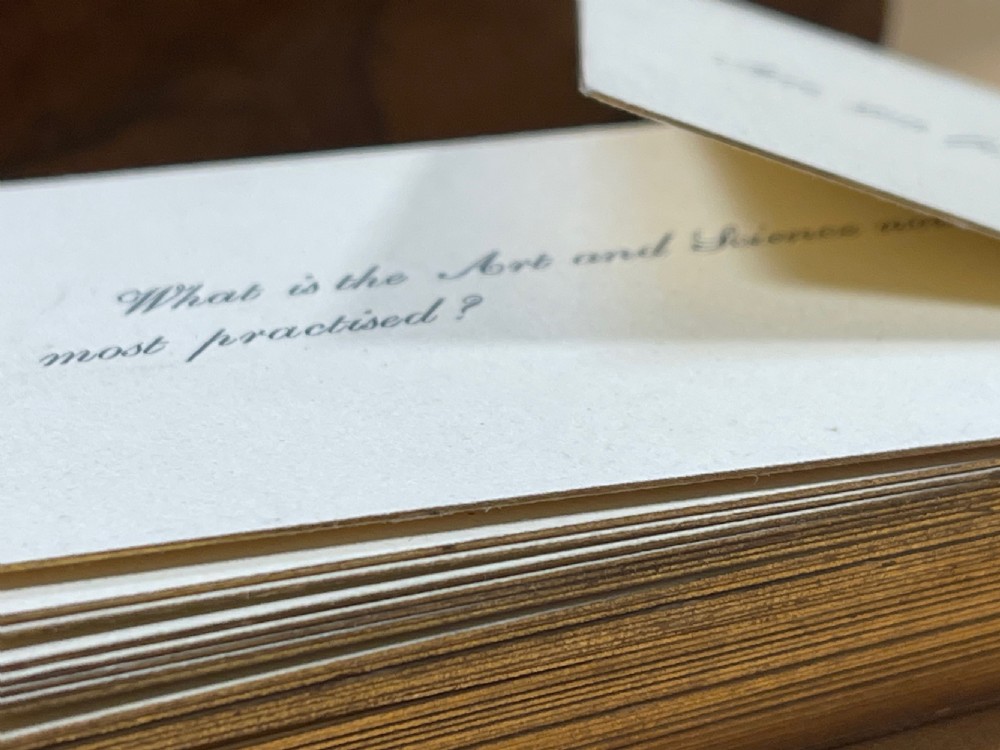 What is the Art and Science
most practised ?